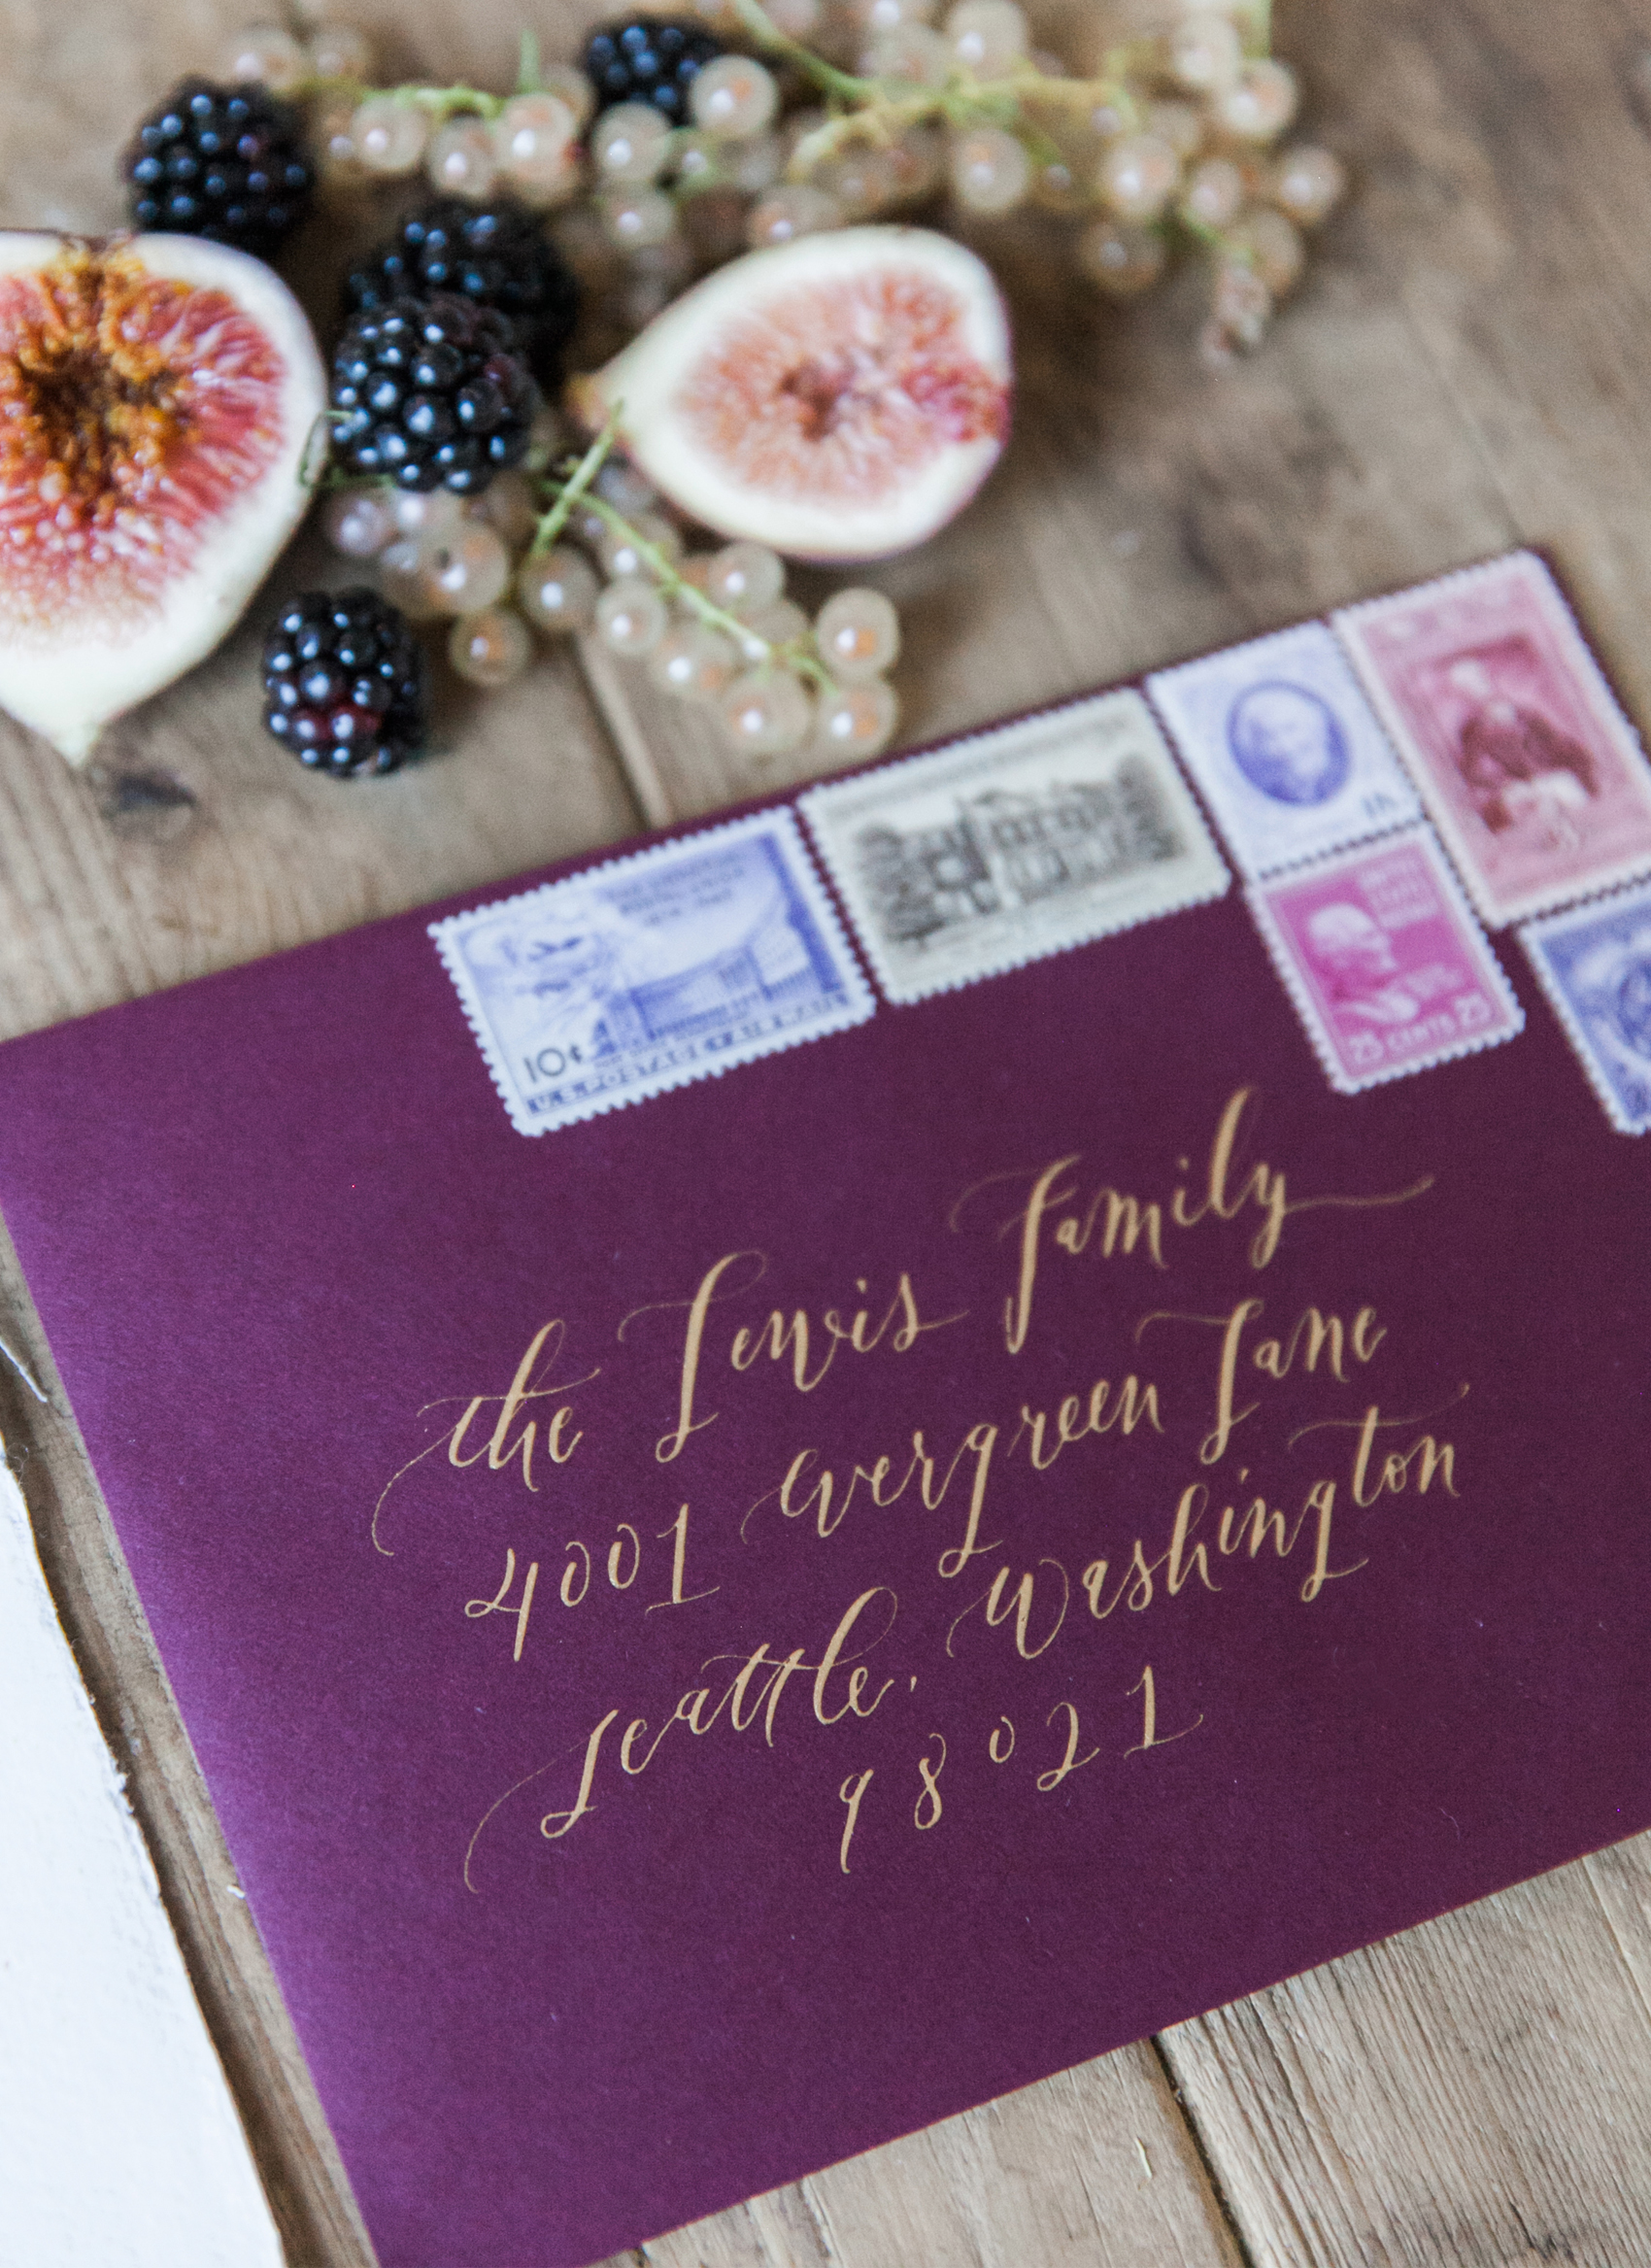 10¢
U.S. POSTAGE
25 CENTS 25
the Lewis Family
4001 evergreen Lane
seattle, Washington
98021